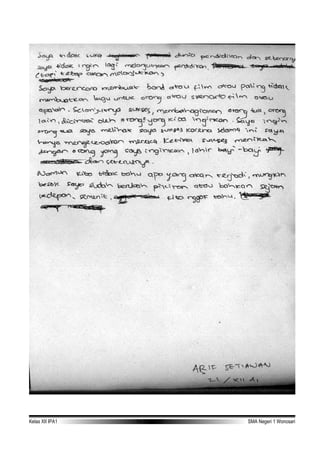 saya tidak suka dunia pendidikan dan sebenarnya
saya tidak ingin lagi melanjutkan pendidikan
(tapi tetap akan melanjutkan)
Saya berencana membuat band atau film atau paling tidak
membuatkan lagu untuk orang atau skenario film atau
apalah. Selanjutnya sukses, membahagiakan orang tua, orang
lain, dicintai oleh orang² yang kita inginkan. Saya ingin
orang tua saya melihat saya sukses karena selama ini saya
hanya mengecewakan mereka. Ketika sukses menikah
dengan orang yang saya inginkan, lahir bayi-bayi
dan seterusnya.
Namun kita tidak tahu apa yang akan terjadi, mungkin
besok saya sudah berubah pikiran atau bahkan sejam
kedepan, semenit, kita nggak tahu.
ARIF SETIAWAN
/ XII A1
Kelas XII IPA1 SMA Negeri 1 Wonosari